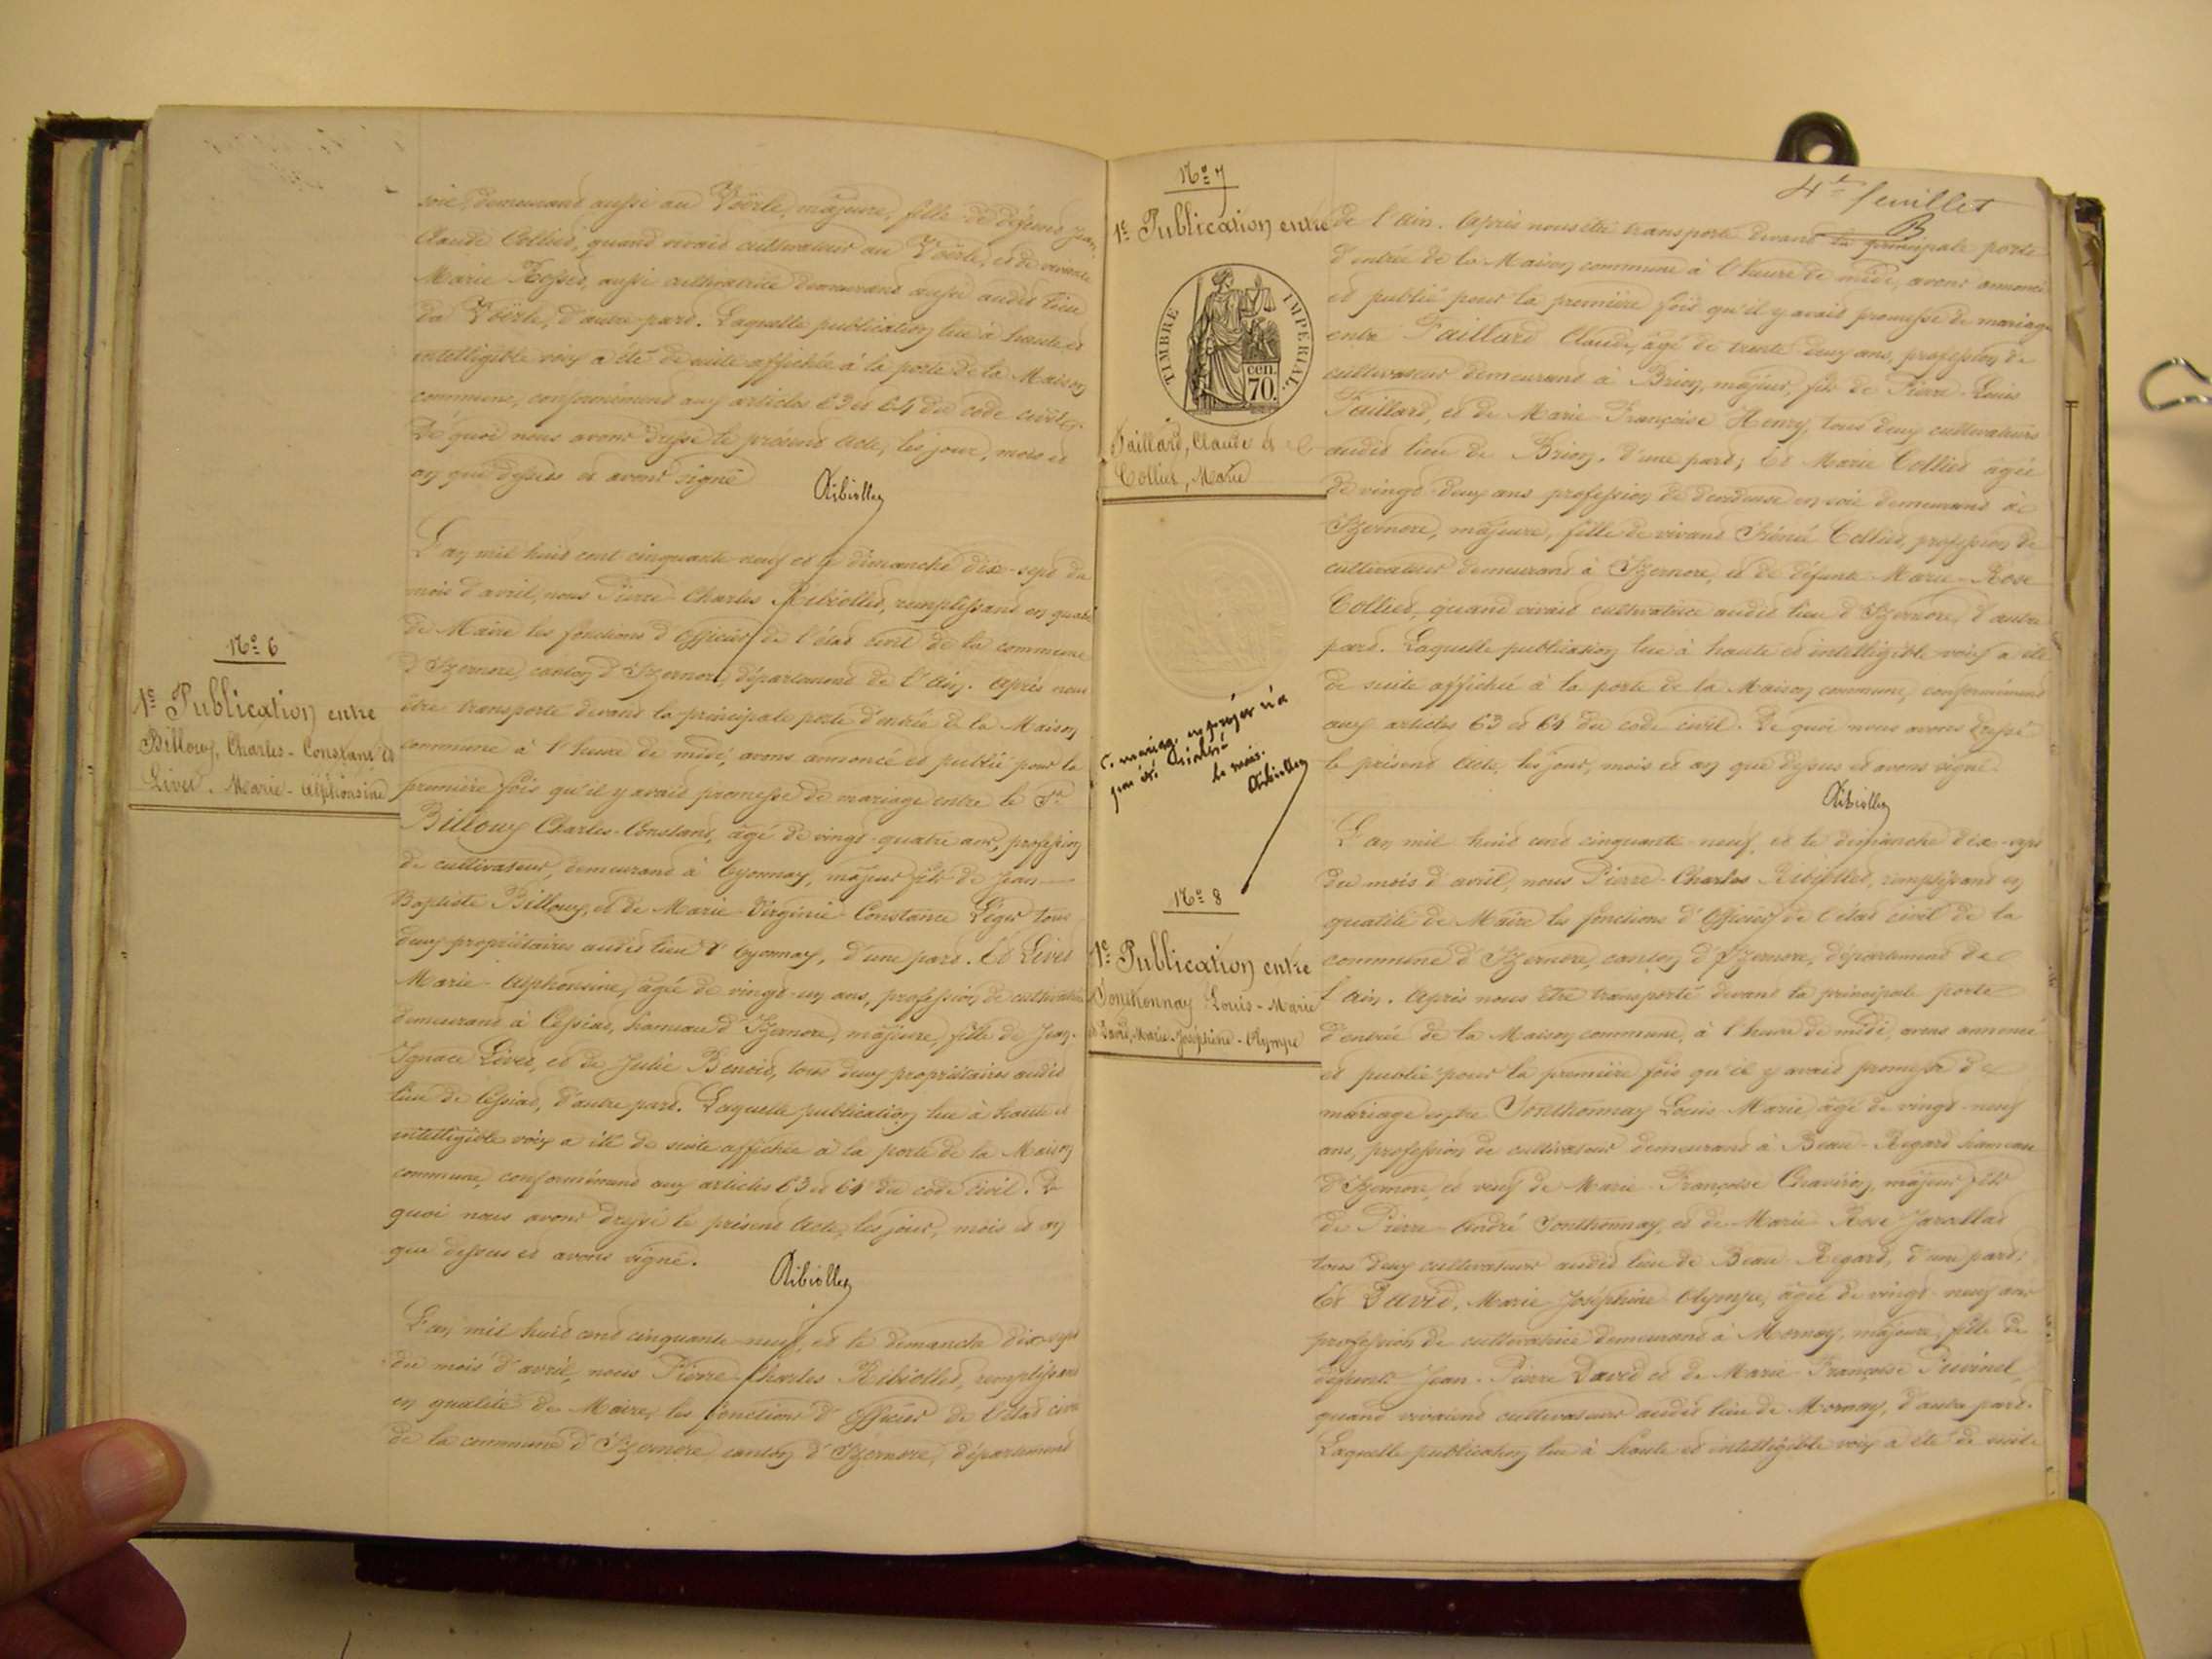 soie, demeurant aussi au Voërle, majeure, fille de défunt Jean
Claude Colliet, quand vivait cultivateur au Voërle, et de vivante
Marie Rosset, aussi cultivatrice demeurant aussi audit lieu
du Voërle, d'autre part. Laquelle publication lue à haute et
intelligible voix a été de suite affichée à la porte de la Maison
commune, conformément aux articles 63 et 64 du code civil.
De quoi nous avons dressé le présent acte, les jour, mois et
an que dessus et avons signé
Ribiollet
N° 6
1e Publication entre
Billoux, Charles-Constant et
Livet. Marie-Alphonsine
L'an mil huit cent cinquante neuf et le dimanche dix-sept du
mois d'avril, nous Pierre-Charles Ribiollet, remplissant en qualité
de Maire les fonctions d'officier de l'état civil de la commune
d'Izernore, canton d'Izernore, département de l'Ain. Après nous
être transporté devant la principale porte d'entrée de la Maison
commune à l'heure de midi, avons annoncé et publié pour la
première fois qu'il y avait promesse de mariage entre le Sr
Billoux Charles-Constant, âgé de vingt-quatre ans, profession
de cultivateur, demeurant à Oyonnax, majeur fils de Jean
Baptiste Billoux, et de Marie Virginie Constance Léger tous
deux propriétaires audit lieu d'Oyonnax, d'une part. Et Livet
Marie-Alphonsine, âgée de vingt-un ans, profession de cultivatrice
demeurant à Cessiat, hameau d'Izernore, majeure, fille de Jean-
Ignace Livet, et de Julie Benoit, tous deux propriétaires audit
lieu de Cessiat, d'autre part. Laquelle publication lue à haute et
intelligible voix a été de suite affichée à la porte de la Maison
commune, conformément aux articles 63 et 64 du code civil. De
quoi nous avons dressé le présent acte, les jour, mois et an
que dessus et avons signé.
Ribiollet
L'an mil huit cent cinquante-neuf, et le dimanche dix-sept
du mois d'avril, nous Pierre-Charles Ribiollet, remplissant
en qualité de Maire, les fonctions d'officier de l'état civil
de la commune d'Izernore, canton d'Izernore, département
4e feuillet
N° 7
1e Publication entre
TIMBRE IMPÉRIAL
70. cen.
Paillard, Claude et
Colliet, Marie
de l'Ain. Après nous être transporté devant la principale porte
d'entrée de la Maison commune à l'heure de midi, avons annoncé
et publié pour la première fois qu'il y avait promesse de mariage
entre Paillard Claude, âgé de trente deux ans, profession de
cultivateur demeurant à Brion, majeur, fils de Pierre-Louis
Paillard, et de Marie-Françoise Henry, tous deux cultivateurs
audit lieu de Brion, d'une part; Et Marie Colliet âgée
de vingt-deux ans profession de dévideuse en soie demeurant à
Izernore, majeure, fille de vivant Colliet, profession de
cultivateur demeurant à Izernore, et de défunte Marie-Rose
Colliet, quand vivait cultivatrice audit lieu d'Izernore, d'autre
part. Laquelle publication lue à haute et intelligible voix a été
de suite affichée à la porte de la Maison commune, conformément
aux articles 63 et 64 du code civil. De quoi nous avons dressé
le présent acte, les jour, mois et an que dessus et avons signé.
Ribiollet
Ce mariage en projet n'a
pas été
le maire.
Ribiollet
N° 8
1e Publication entre
Jonthonnay Louis-Marie
et David, Marie-Joséphine-Olympe
L'an mil huit cent cinquante neuf, et le dimanche dix-sept
du mois d'avril, nous Pierre-Charles Ribiollet, remplissant en
qualité de Maire les fonctions d'officier de l'état civil de la
commune d'Izernore, canton d'Izernore, département de
l'Ain. Après nous être transporté devant la principale porte
d'entrée de la Maison commune, à l'heure de midi, avons annoncé
et publié pour la première fois qu'il y avait promesse de
mariage entre Jonthonnay Louis Marie âgé de vingt-neuf
ans, profession de cultivateur demeurant à Beau-Regard hameau
d'Izernore, et veuf de Marie Françoise, majeur fils
de Pierre-André Jonthonnay, et de Marie Rose
tous deux cultivateurs audit lieu de Beau-Regard, d'une part;
Et David, Marie Joséphine Olympe, âgée de vingt-neuf ans
profession de cultivatrice demeurant à Mornay, majeure, fille de
défunts Jean-Pierre David et de Marie Françoise
quand vivaient cultivateurs audit lieu de Mornay, d'autre part.
Laquelle publication lue à haute et intelligible voix a été de suite